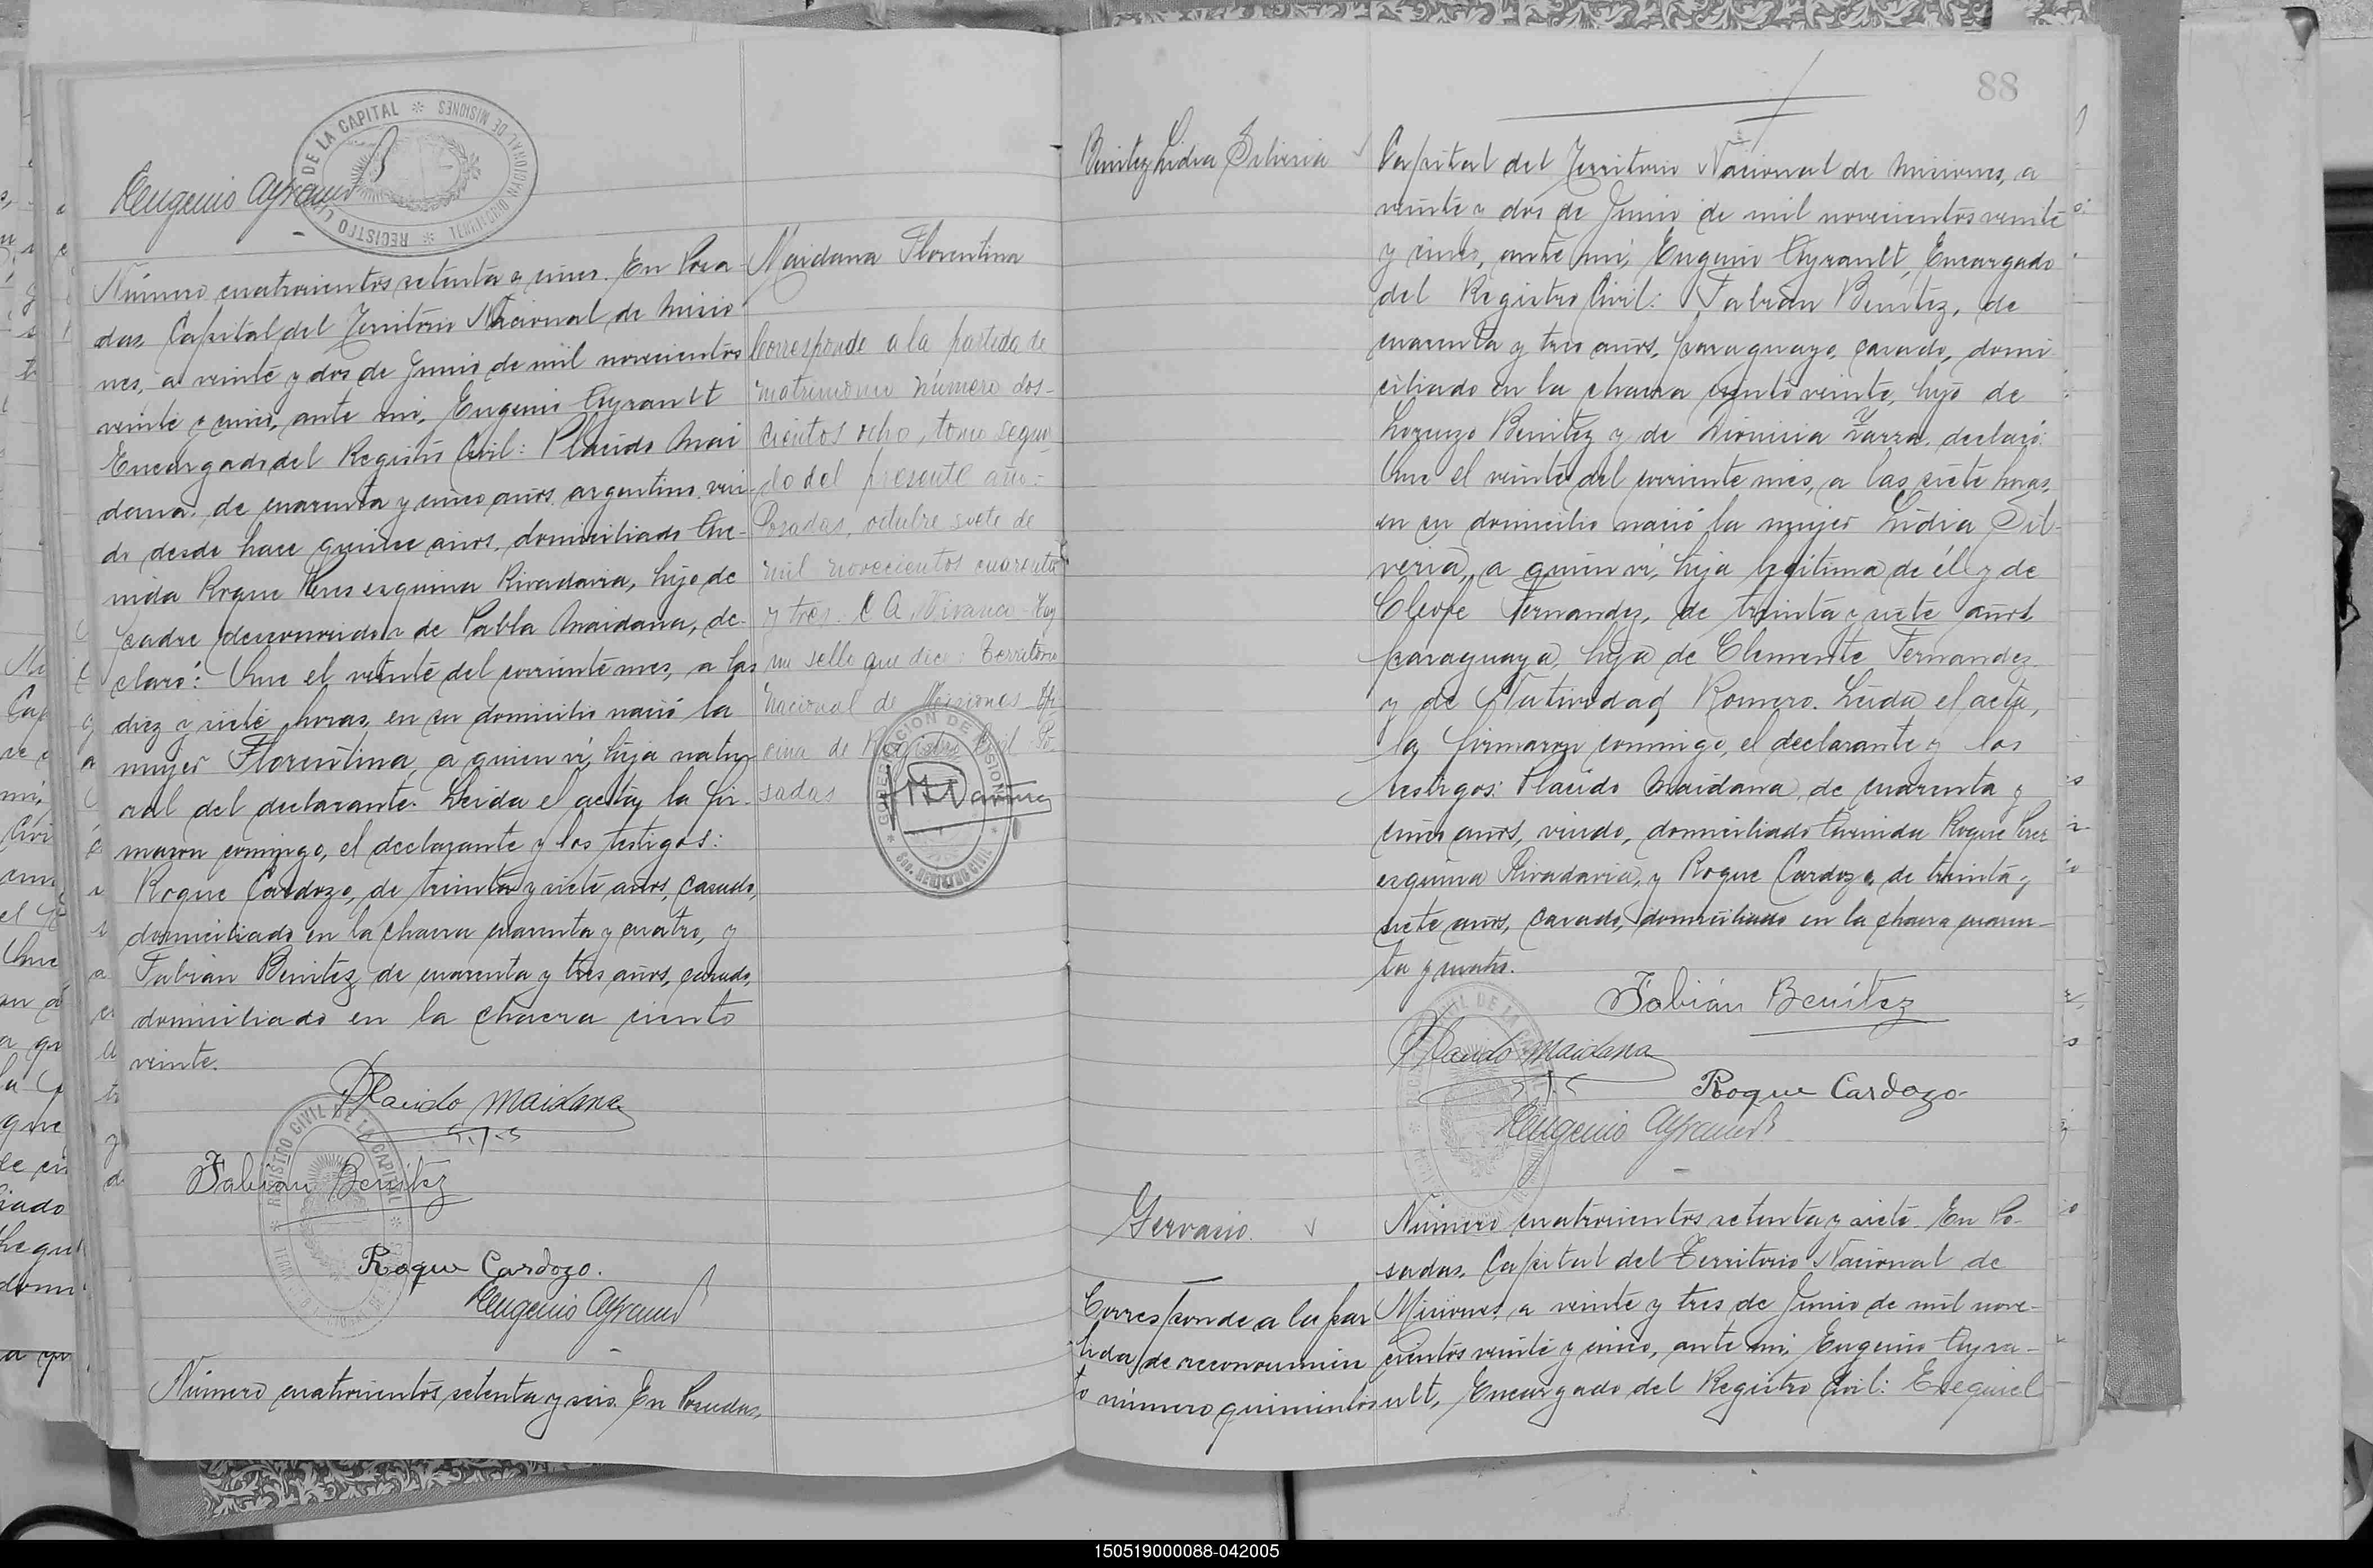 REGISTRO CIVIL DE LA CAPITAL * TERRITORIO NACIONAL DE MISIONES *
Eugenio Ayrault
Número cuatrocientos setenta y cinco. En Posa-
das, Capital del Territorio Nacional de Misio
nes, a veinte y dos de Junio de mil novecientos
veinte y cinco, ante mi, Eugenio Ayrault
Encargado del Registro Civil: Plácido Mai
dana, de cuarenta y cinco años, argentino, viu-
do desde hace quince años, domiciliado Ave-
nida Roque Perez esquina Rivadavia, hijo de
padre desconocido y de Pabla Maidana, de-
claró: Que el veinte del corriente mes, a las
diez y siete horas, en su domicilio nació la
mujer Florentina, a quien vi, hija natu
ral del declarante. Leida el acta, la fir-
maron conmigo, el declarante y los testigos:
Roque Cardozo, de treinta y siete años, casado,
domiciliado en la chacra cuarenta y cuatro, y
Fabián Benitez, de cuarenta y tres años, casado,
domiciliado en la chacra ciento
veinte.
Placido Maidana
Fabián Benítez
REGISTRO CIVIL DE LA CAPITAL
Roque Cardozo.
Eugenio Ayrault
Número cuatrocientos setenta y seis. En Posadas,
Maidana Florentina
Corresponde a la partida de
matrimonio número dos-
cientos ocho, tomo segun
do del presente año.-
Posadas, octubre siete de
mil novecientos cuarenta
y tres. C A. Vivanco - Hay
un sello que dice: Territorio
Nacional de Misiones - Ofi
cina de Registro Civil Po-
sadas
GOBERNACION DE MISIONES
SEC. REGISTRO CIVIL
88
Benitez Lidia Silveria
Capital del Territorio Nacional de Misiones, a
veinte y dos de Junio de mil novecientos veinte
y cinco, ante mi, Eugenio Ayrault, Encargado
del Registro Civil: Fabián Benítez, de
cuarenta y tres años, paraguayo, casado, domi
ciliado en la chacra ciento veinte, hijo de
Lorenzo Benítez y de Dionisia declaró:
Que el veinte del corriente mes, a las siete horas,
en su domicilio nació la mujer Lidia Sil-
veria, a quien vi, hija legítima de él y de
Cleofe Fernandez, de treinta y siete años,
paraguaya, hija de Clemente Fernandez
y de Natividad Romero. Leida el acta,
la firmaron conmigo, el declarante y los
testigos: Plácido Maidana, de cuarenta y
cinco años, viudo, domiciliado Avenida Roque Perez
esquina Rivadavia, y Roque Cardozo, de treinta y
siete años, casado, domiciliado en la chacra cuaren-
ta y cuatro.
Fabián Benítez
Placido Maidana
Roque Cardozo-
Eugenio Ayrault
Gervasio.
Corresponde a la par
tida de reconocimien
to número quinientos
Número cuatrocientos setenta y siete. En Po-
sadas, Capital del Territorio Nacional de
Misiones, a veinte y tres de Junio de mil nove-
cientos veinte y cinco, ante mi, Eugenio Ayra-
ult, Encargado del Registro Civil: Esequiel
150519000088-042005